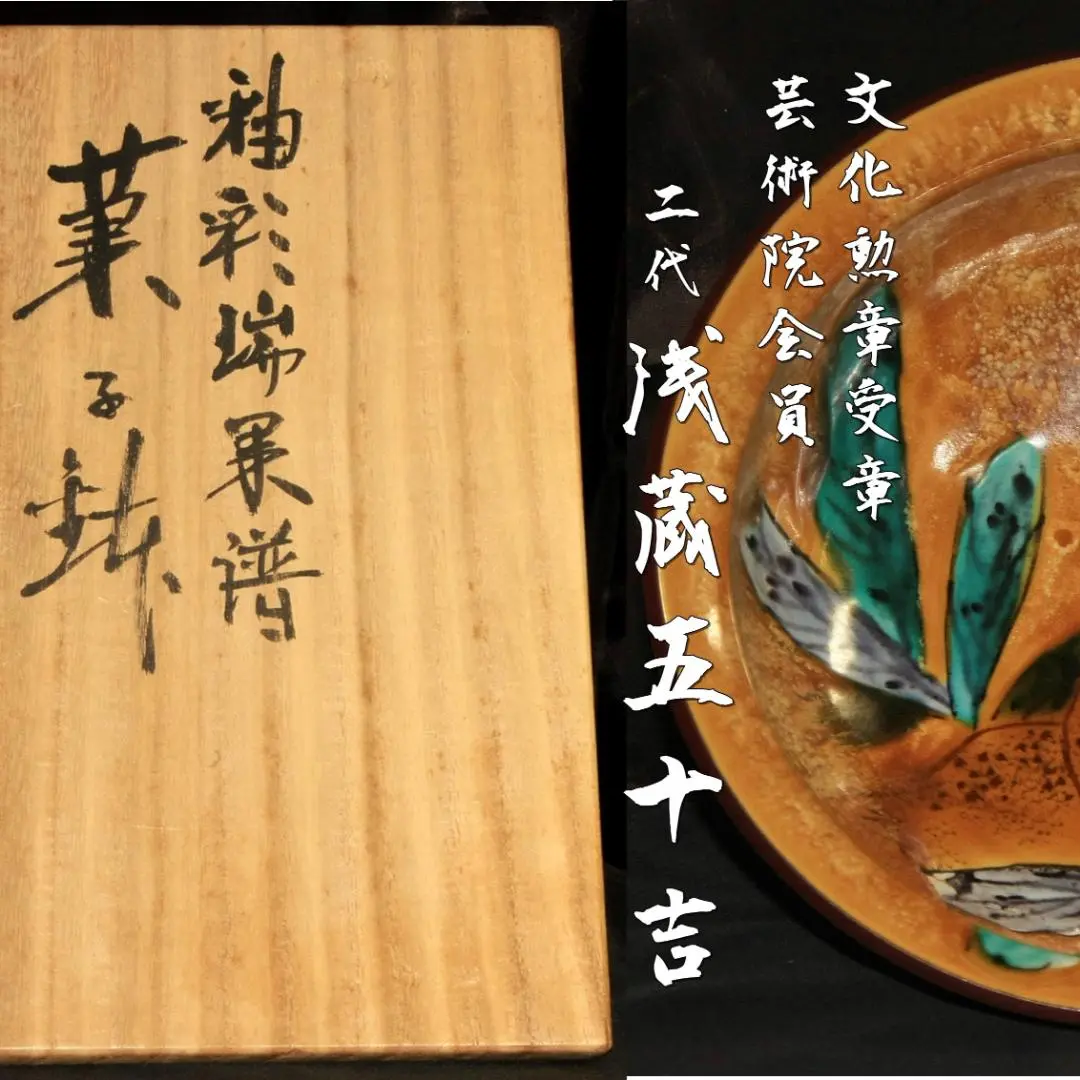 釉彩瑞果譜
菓子鉢
文化勲章受章
芸術院会員
二代
浅蔵五十吉